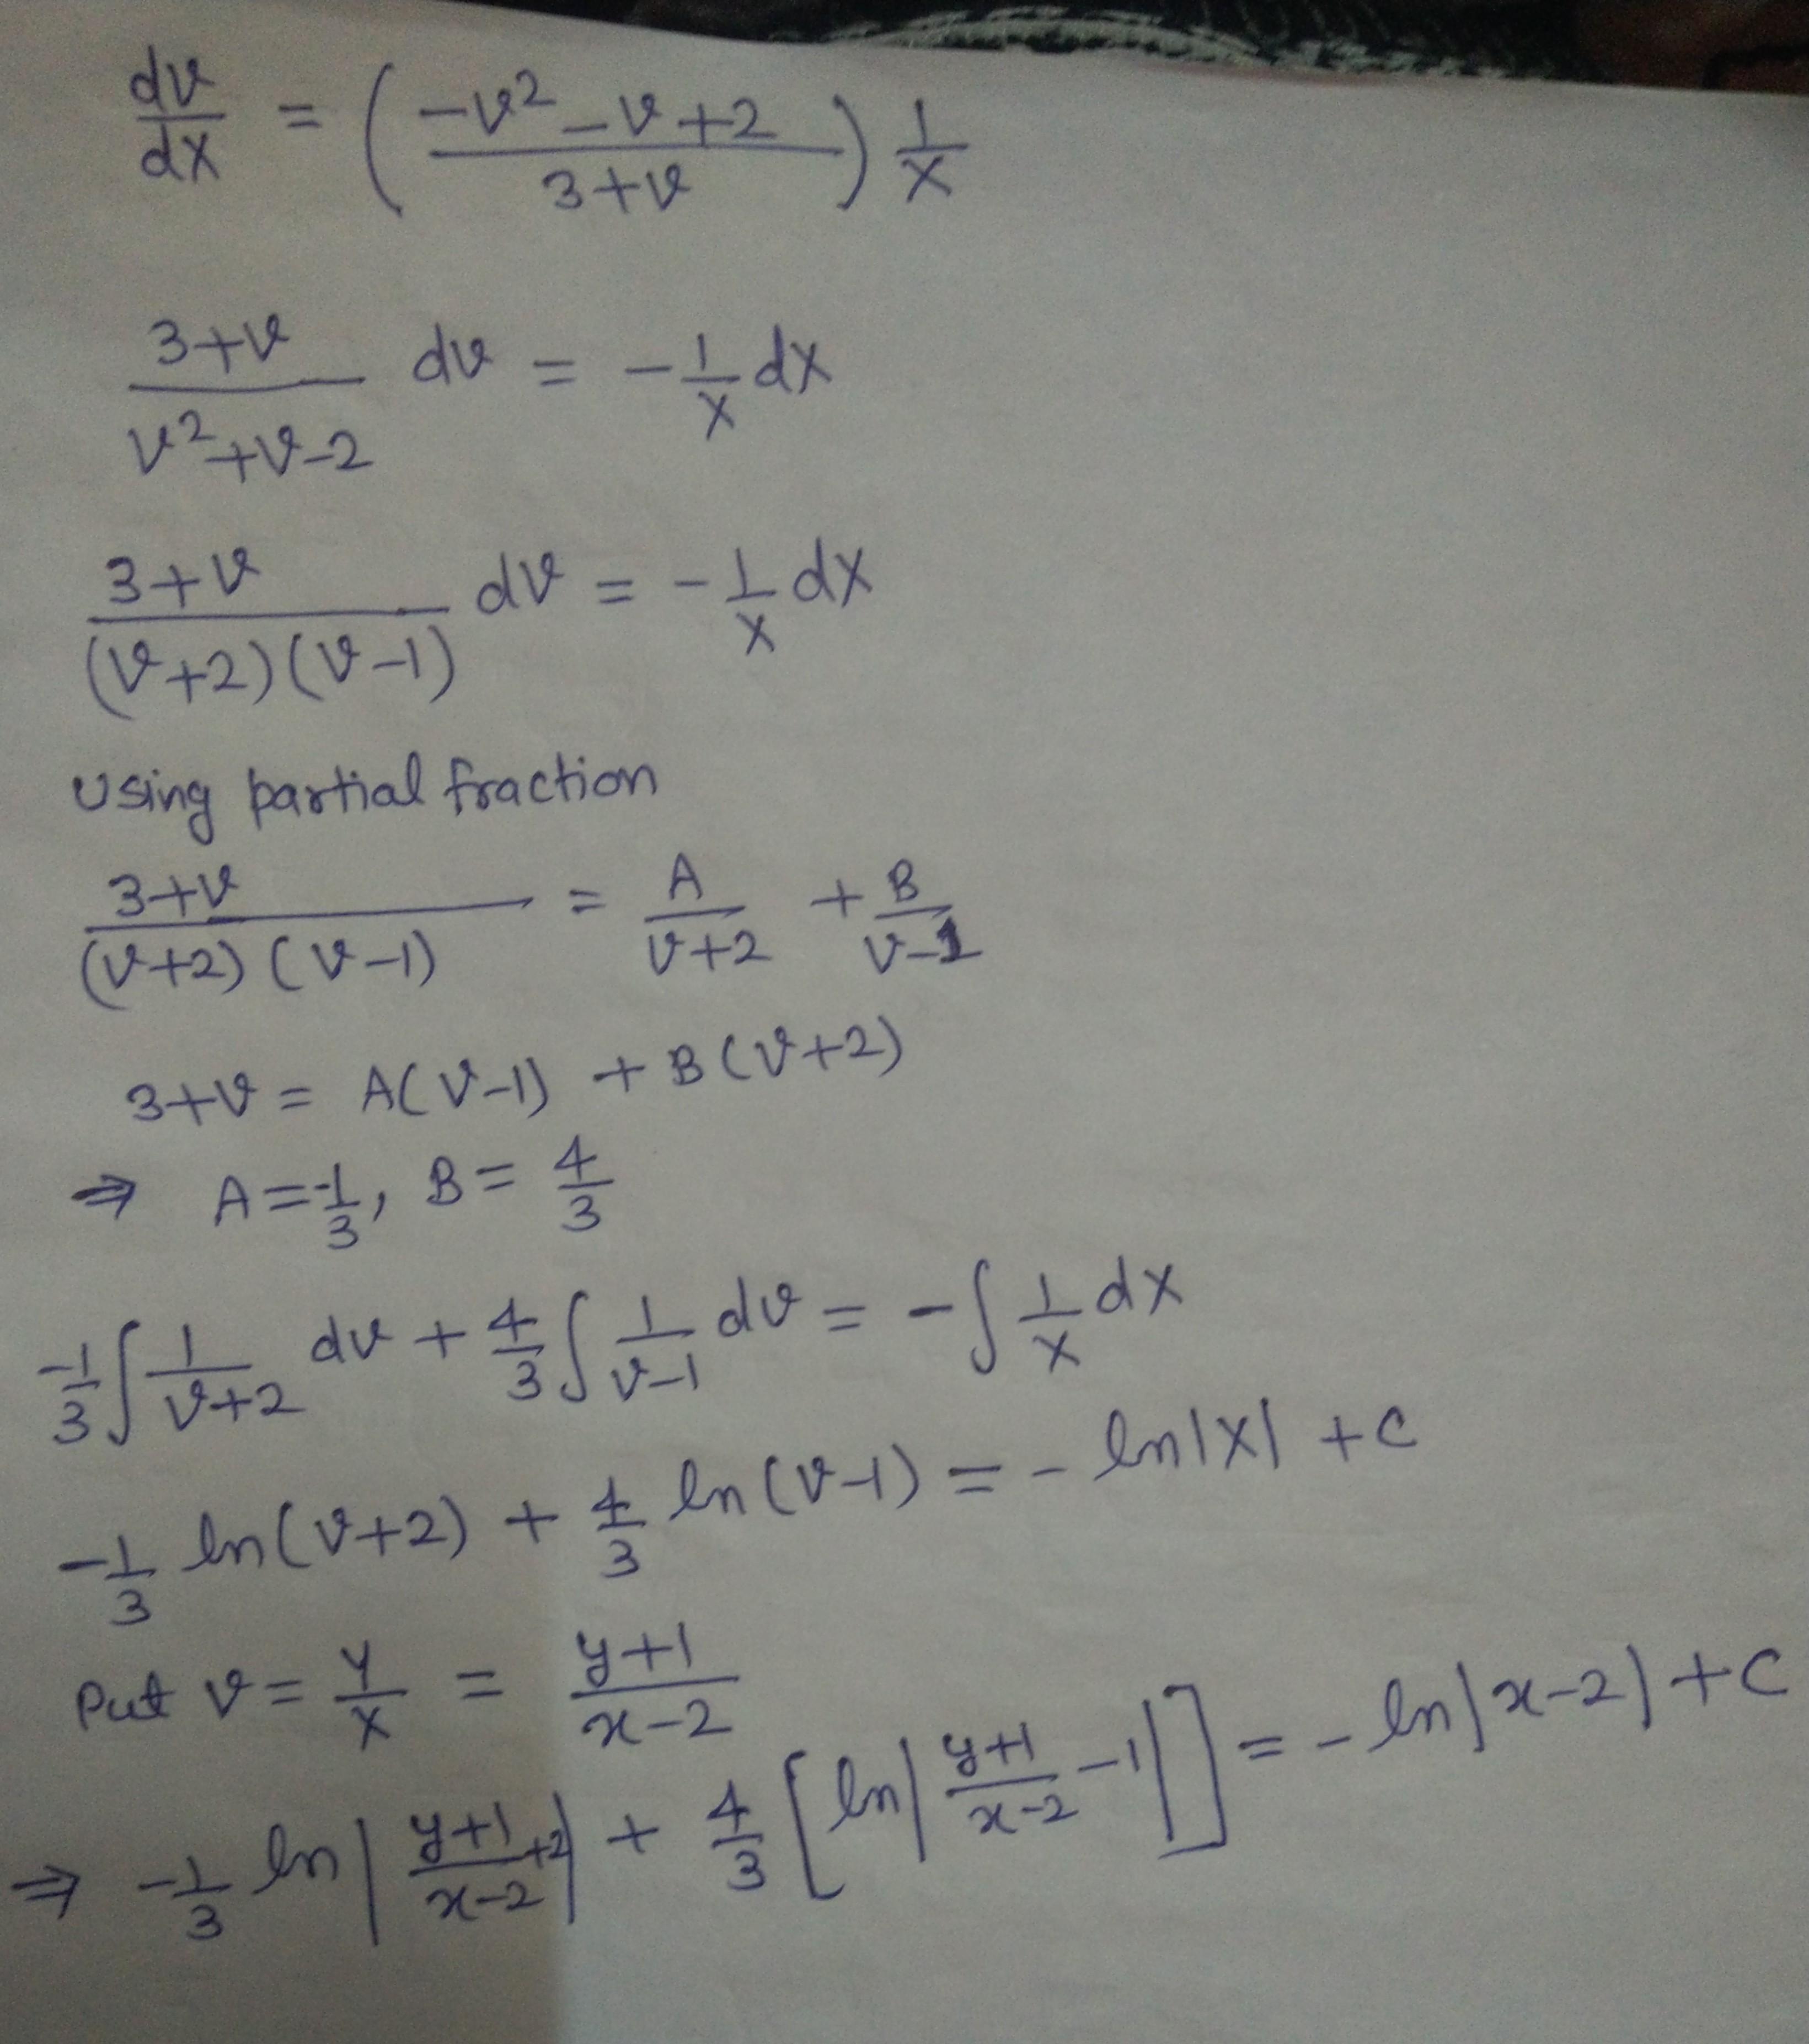 dv/dX = ( (-v² - v + 2) / (3+v) ) 1/X
(3+v) / (v²+v-2) dv = - 1/X dX
(3+v) / ((v+2)(v-1)) dv = - 1/X dX
Using partial fraction
(3+v) / ((v+2)(v-1)) = A/(v+2) + B/(v-1)
3+v = A(v-1) + B(v+2)
⇒ A = -1/3, B = 4/3
-1/3 ∫ 1/(v+2) dv + 4/3 ∫ 1/(v-1) dv = - ∫ 1/X dX
-1/3 ln(v+2) + 4/3 ln(v-1) = - ln|X| + c
Put v = Y/X = (y+1)/(x-2)
⇒ -1/3 ln| (y+1)/(x-2) +2 | + 4/3 [ ln| (y+1)/(x-2) - 1 | ] = - ln|x-2| + C